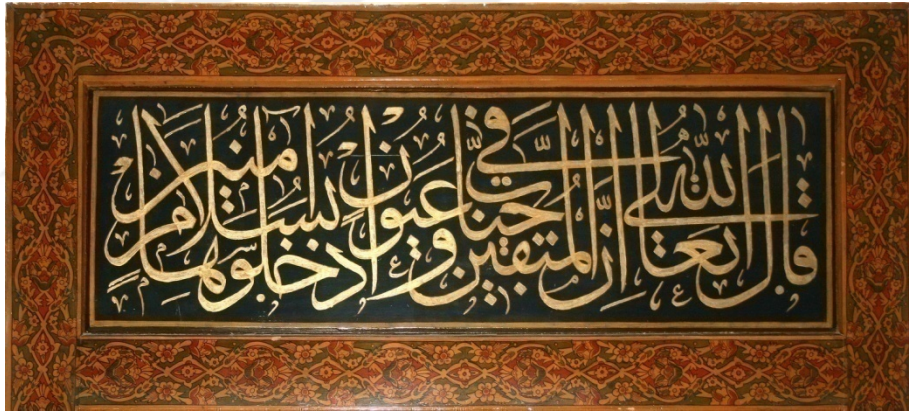 قَالَ اللّٰهُ تَعَالَى إِنَّ الْمُتَّقِينَ فِي جَنَّاتٍ وَعُيُونٍ ادْخُلُوهَا بِسَلَامٍ آمِنِينَ